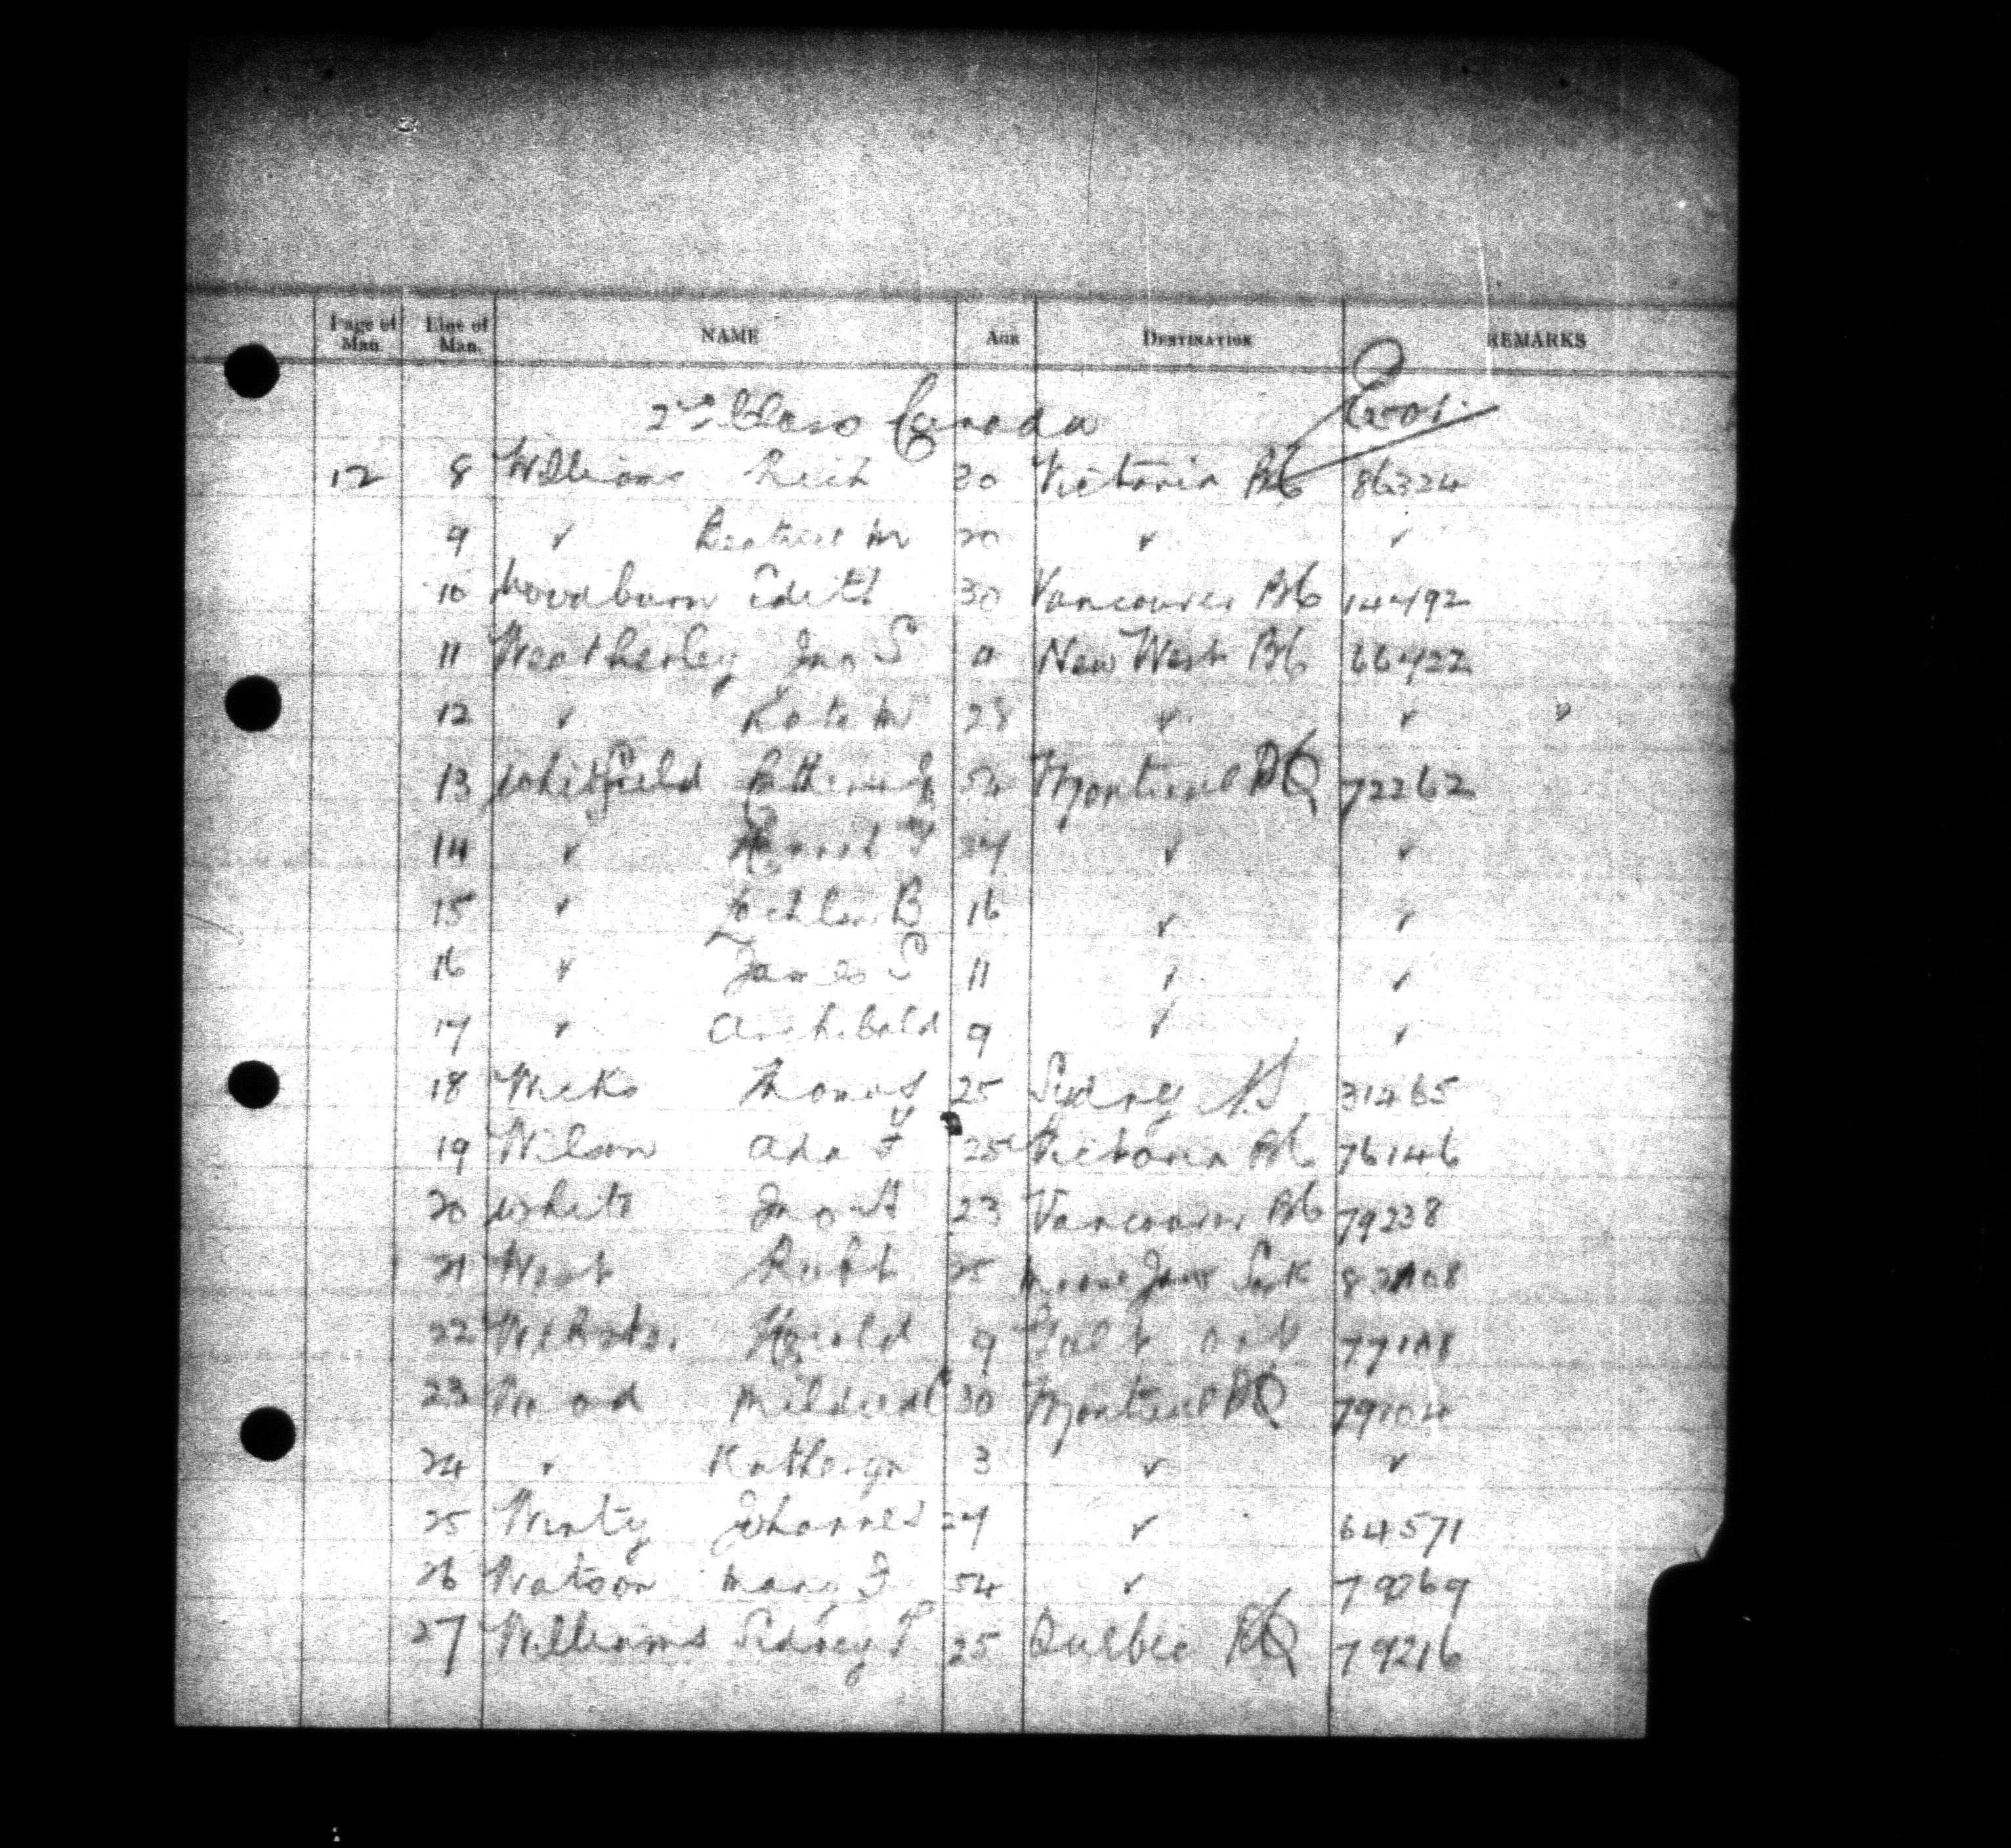 Page of Man. Line of Man. NAME AGE DESTINATION REMARKS
2nd Class Canada
12 8 Williams 30 Victoria BC 86324
9 " Beatrice M 20 " "
10 Woodburn Edith 30 Vancouver BC 14492
11 Weatherley Jno S New West BC 66422
12 " Kate M 28 " "
13 Whitfield Catherine 52 Montreal PQ 72262
14 " " "
15 " B 16 " "
16 " James S 11 " "
17 " Archibald 9 " "
18 Thomas 25 Sydney NS 31465
19 Wilson Ada F 25 Victoria BC 76146
20 White Jno H 23 Vancouver BC 79238
21 West Robt 25 Moose Jaw Sask
22 Webster Harold 9 Galt Ont 77108
23 Wood Mildred 30 Montreal PQ 79104
24 " Katheryn 3 " "
25 Johannes 27 " 64571
26 Watson Mary J 54 " 79269
27 Williams Sidney T 25 Quebec PQ 79216